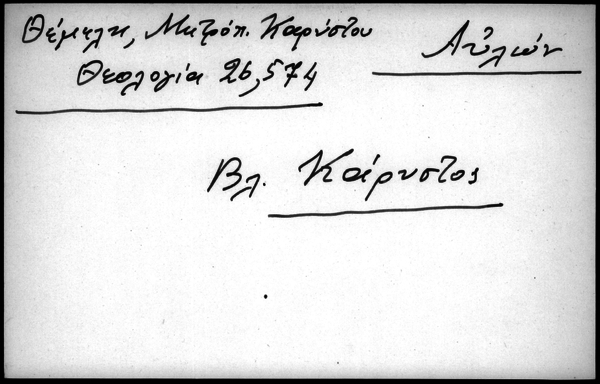 Θέμελη, Μητρόπ. Καρύστου
Θεολογία 26,574
Αὐλών
Βλ. Κάρυστος